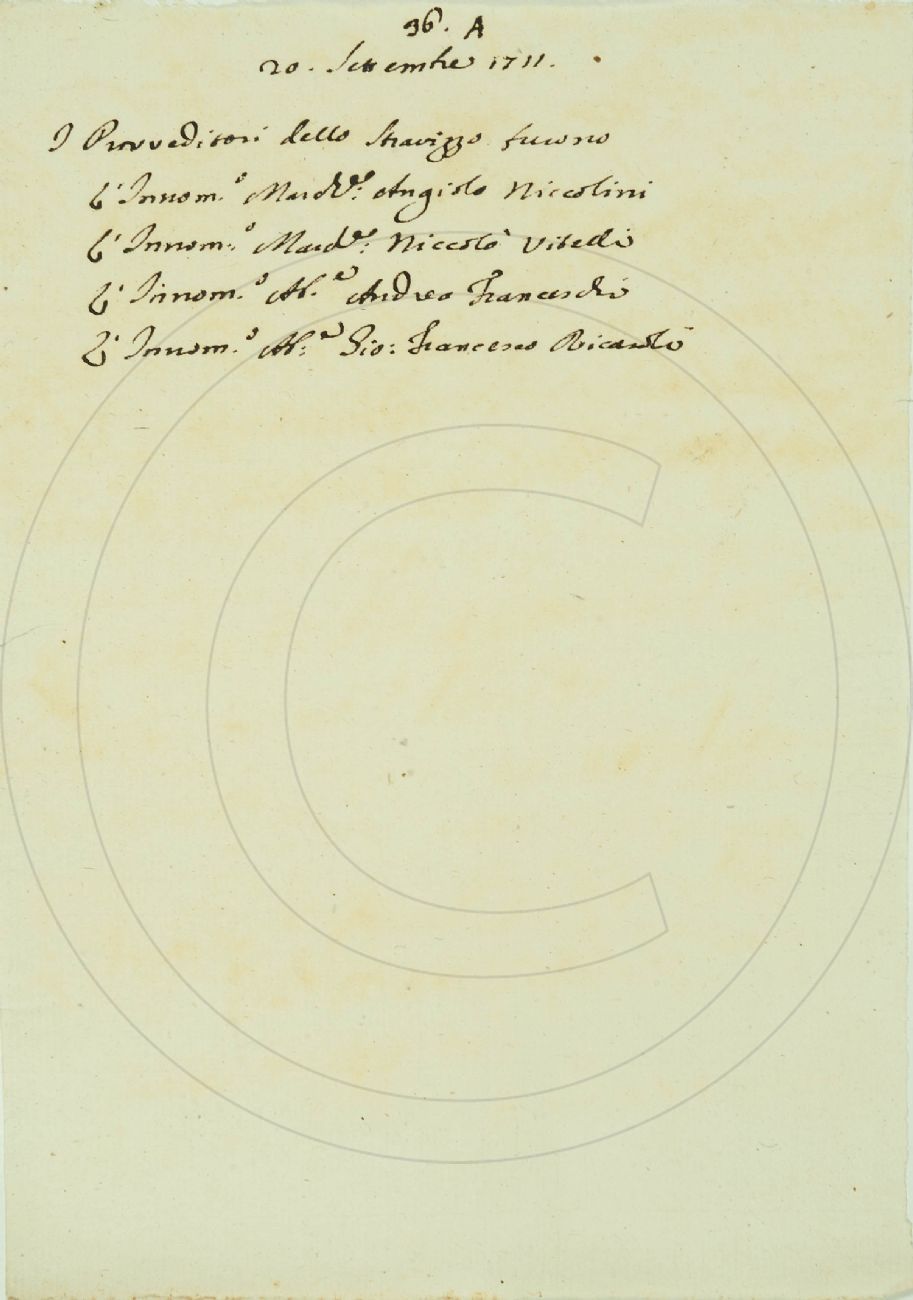 36. A
20. Settembre 1711.
I Provveditori dello Stravizzo furono
L' Innom.º March.e: Angiolo Niccolini
L' Innom.º March.e: Niccolò Vitelli
L' Innom.º Ab.e Andrea Franceschi
L' Innom.º Ab:e Gio: Francesco Ricasoli